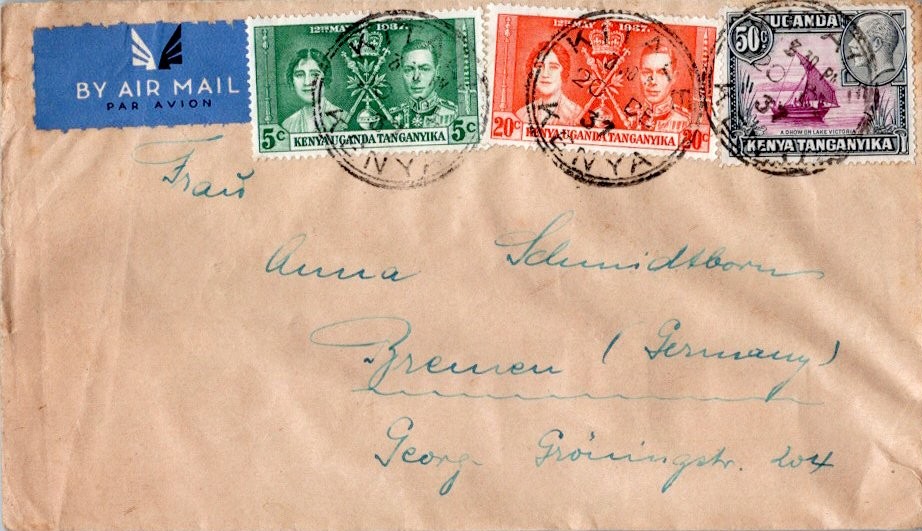 BY AIR MAIL
PAR AVION
12TH MAY 1937.
5c 5c
KENYA UGANDA TANGANYIKA
12TH MAY 1937.
20c 20c
KENYA UGANDA TANGANYIKA
UGANDA
50c
A DHOW ON LAKE VICTORIA
KENYA TANGANYIKA
KENYA
20 DE
37
KENYA
20
37
Frau
Anna Schmidtborn
Bremen (Germany)
Georg Gröningstr. 204